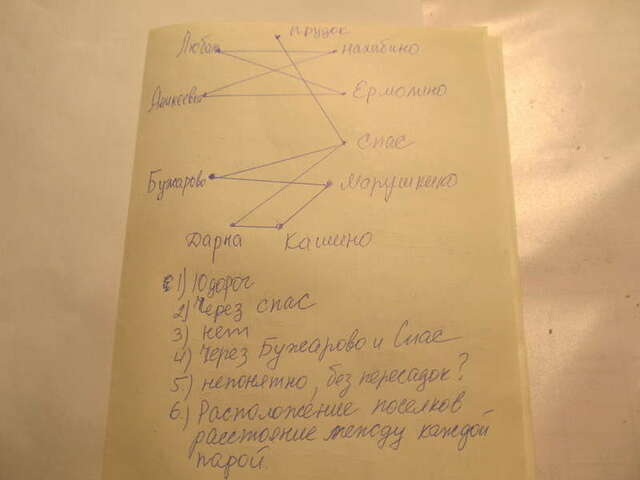 Прудск
Любак
Нахабино
Ермолино
Спас
Бужарово
Марушкино
Дарна
Кашино
1) 10 дорог
2) Через спас
3) нет
4) Через Бужарово и Спас
5) непонятно, без пересадок?
6) Расположение поселков -
расстояние между каждой
парой